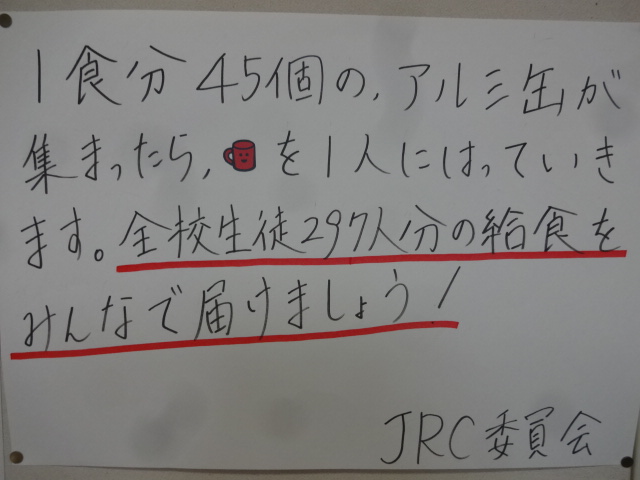 1食分45個の,アルミ缶が
集まったら,を1人にはっていき
ます。全校生徒297人分の給食を
みんなで届けましょう!
JRC委員会